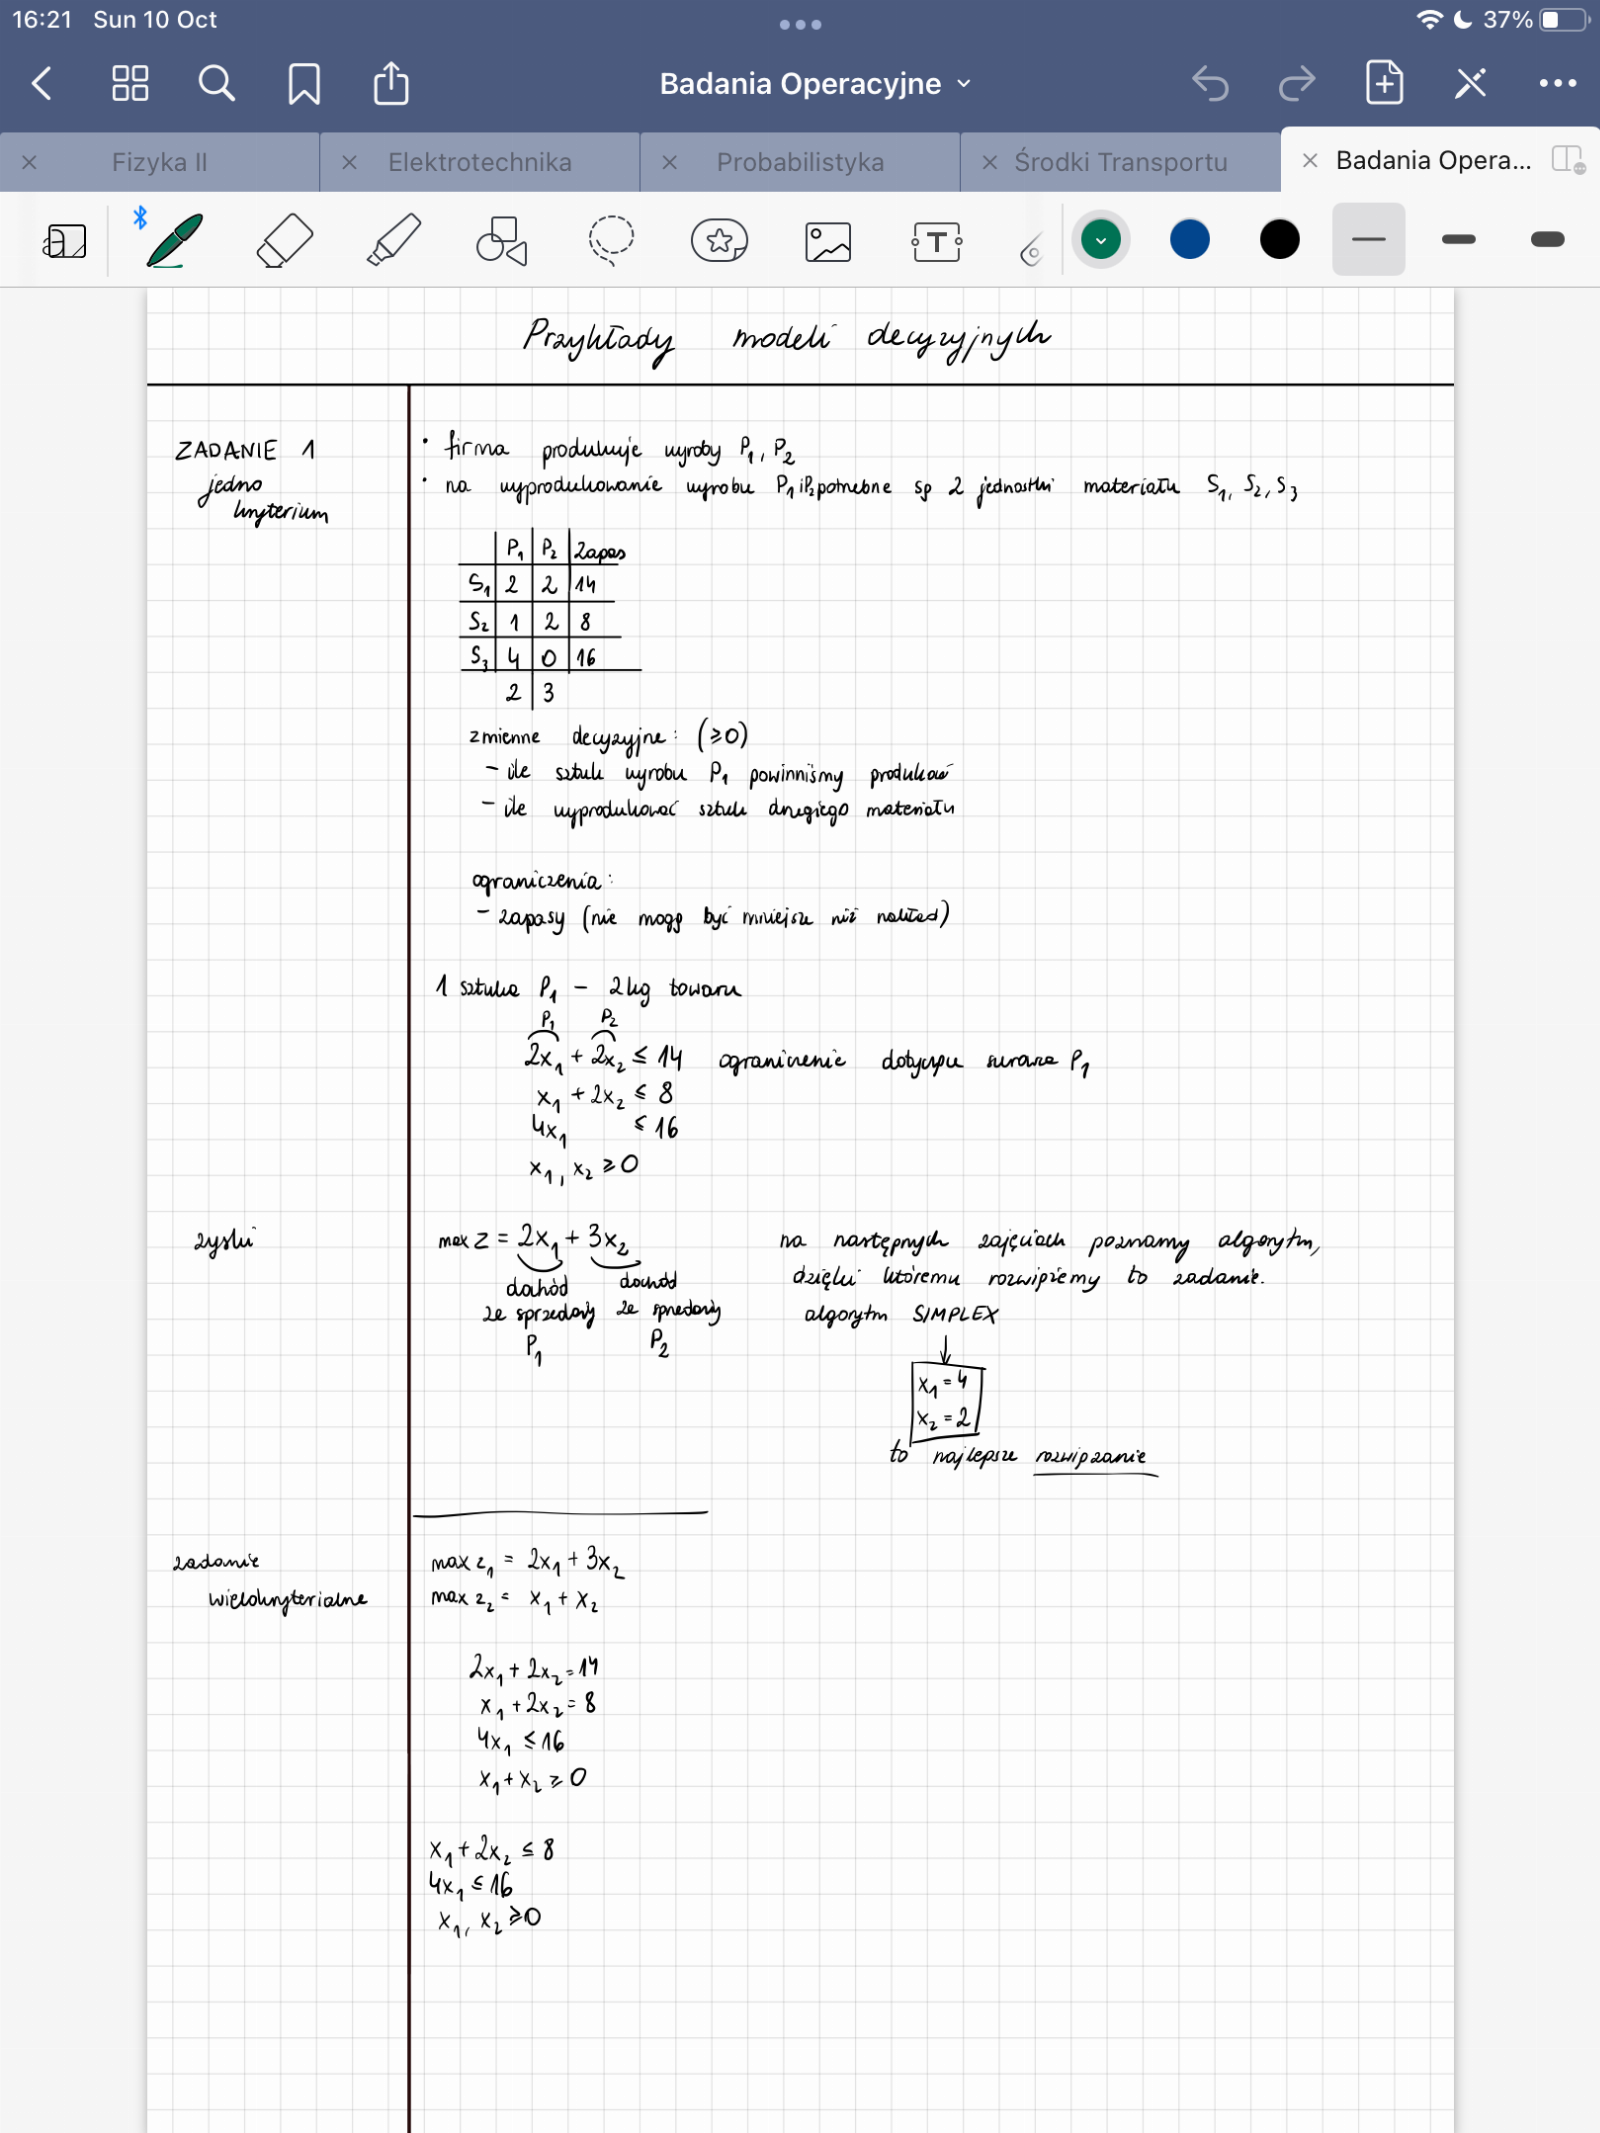 16:21 Sun 10 Oct 37%
Badania Operacyjne
Fizyka II Elektrotechnika Probabilistyka Środki Transportu Badania Opera...
Przykłady modeli decyzyjnych
ZADANIE 1
jedno
kryterium
• firma produkuje wyroby P₁, P₂
• na wyprodukowanie wyrobu P₁ i P₂ potrzebne są 2 jednostki materiału S₁, S₂, S₃
P₁ P₂ Zapas
S₁ 2 2 14
S₂ 1 2 8
S₃ 4 0 16
2 3
zmienne decyzyjne: (≥0)
– ile sztuk wyrobu P₁ powinniśmy produkować
– ile wyprodukować sztuk drugiego materiału
ograniczenia:
– zapasy (nie mogą być mniejsze niż nakład)
1 sztuka P₁ – 2kg towaru
P₁ P₂
2x₁ + 2x₂ ≤ 14 ograniczenie dotyczące surowca P₁
x₁ + 2x₂ ≤ 8
4x₁ ≤ 16
x₁, x₂ ≥ 0
zyski
max z = 2x₁ + 3x₂
dochód dochód
ze sprzedaży ze sprzedaży
P₁ P₂
na następnych zajęciach poznamy algorytm,
dzięki któremu rozwiążemy to zadanie.
algorytm SIMPLEX
↓
x₁ = 4
x₂ = 2
to najlepsze rozwiązanie
zadanie
wielokryterialne
max z₁ = 2x₁ + 3x₂
max z₂ = x₁ + x₂
2x₁ + 2x₂ = 14
x₁ + 2x₂ = 8
4x₁ ≤ 16
x₁ + x₂ ≥ 0
x₁ + 2x₂ ≤ 8
4x₁ ≤ 16
x₁, x₂ ≥ 0